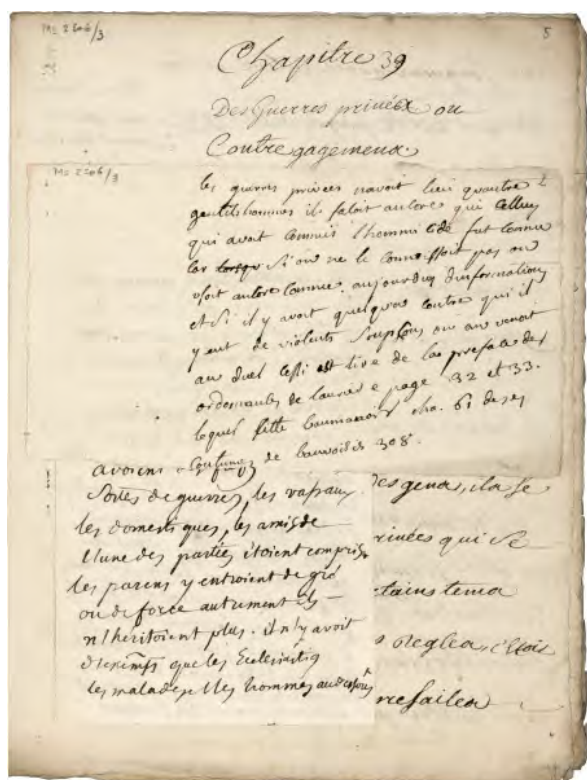 Ms 2506/3
5
Chapitre 39
Des Guerres privées ou
Contregagemens.
Ms 2506/3
les guerres privees navoit lieu quantre
gentilshommes il faloit ancore que celluy
qui avoit commis lhommicide fut connu
car si on ne le connessoit pas on
usoit ancore comme aujourduy dinformations
et si il y avoit quelquun contre qui il
y eut de violents soupçons on an venoit
au duel cessi est tire de la preface des
ordonnances de lauriere page 32 et 33.
lequel sitte baumanoir cha. 61 de ses
coutumes de bauvoisis 308.
avoient
sortes de guerres, les vassaux
les domestiques, les amis de
l'une des parties étoient compris
les parens y entroient de gré
ou de force autrement ils
n'heritoient plus. il n'y avoit
d'exempts que les Eclesiastiq
les malades et les hommes
des gens, il a se
rivées qui se
rtains tems
s regles, c'étois